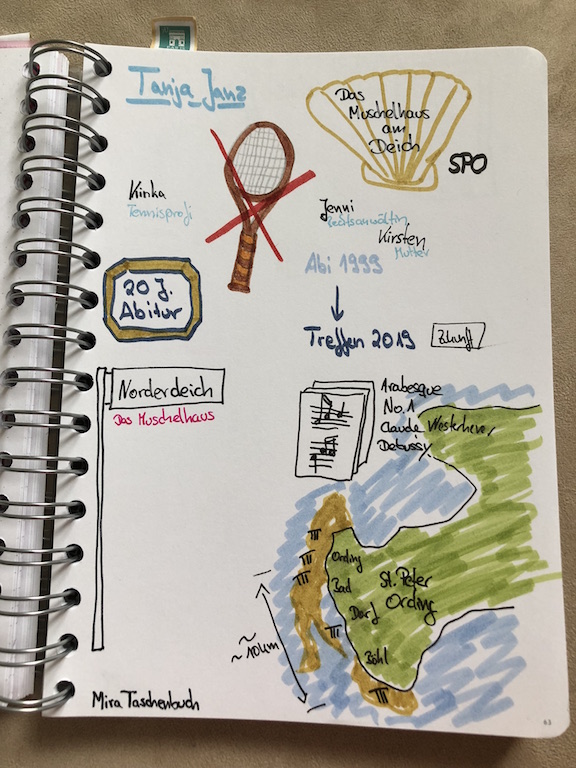 Tanja Janz
Das
Muschelhaus
am
Deich
SPO
Kinka
Tennisprofi
Jenni
Kirsten
Mutter
Abi 1999
20 J.
Abitur
Treffen 2019
Norderdeich
Das Muschelhaus
Arabesque
No. 1
Claude
Debussy
Westerhever
Ording
Bad
St. Peter
Ording
Dorf
Böhl
~10km
Mira Taschenbuch
63